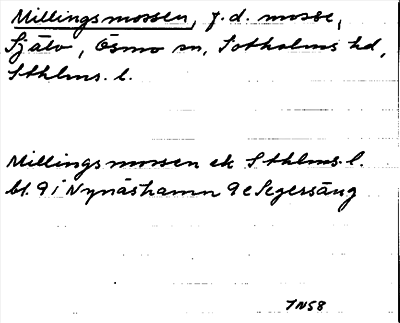 Millingsmossen, f.d. mosse,
Själv, Ösmo sn, Sotholms hd,
Sthlms. l.
Millingsmossen ek Sthlms. l.
bl. 9 i Nynäshamn 9e Segersäng
IN58